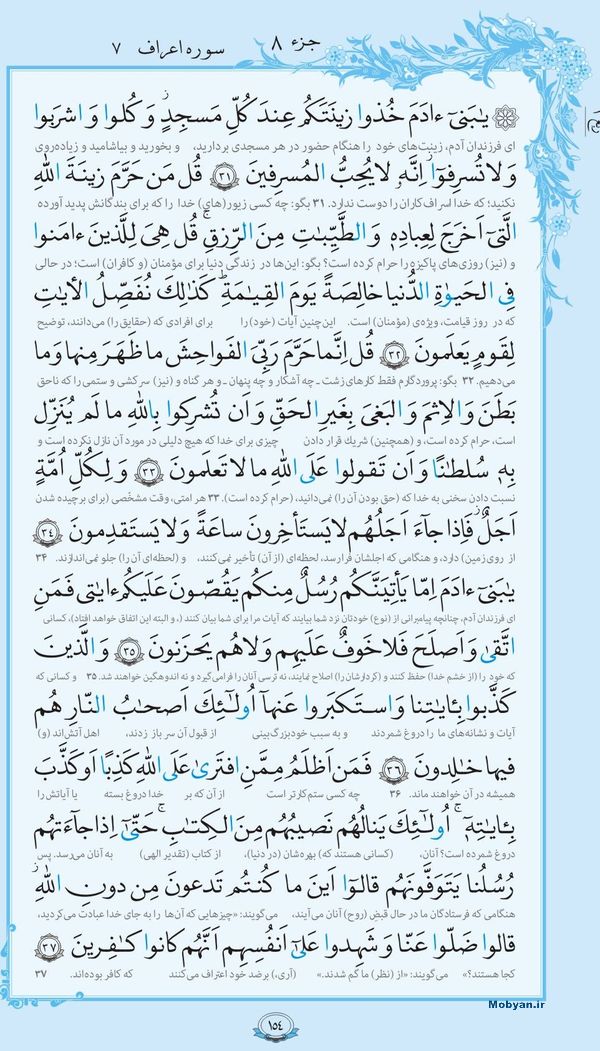 جزء ۸ سوره اعراف ۷
یـٰبَنیٓ ءادَمَ خُذوا زینَتَکُم عِندَ کُلِّ مَسجِدٍ وَ کُلوا وَ اشرَبوا
ای فرزندان آدم، زینت‌های خود را هنگام حضور در هر مسجدی بردارید، و بخورید و بیاشامید و زیاده‌روی
وَلا تُسرِفوٓا اِنَّهُ لا یُحِبُّ المُسرِفینَ ﴿۳۱﴾ قُل مَن حَرَّمَ زینَةَ اللهِ
نکنید؛ که خدا اسراف‌کاران را دوست ندارد. ۳۱ بگو: چه کسی زیور(های) خدا را که برای بندگانش پدید آورده
الَّتیٓ اَخرَجَ لِعِبادِهٖ وَ الطَّیِّبـٰتِ مِنَ الرِّزقِ قُل هِیَ لِلَّذینَ ءامَنوا
و (نیز) روزی‌های پاکیزه را حرام کرده است؟ بگو: این‌ها در زندگی دنیا برای مؤمنان (و کافران) است؛ در حالی
فِی الحَیوٰةِ الدُّنیا خالِصَةً یَومَ القِیـٰمَةِ کَذٰلِکَ نُفَصِّلُ الأٰیٰتِ
که در روز قیامت، ویژه‌ی (مؤمنان) است. این‌چنین آیات (خود) را برای افرادی که (حقایق را) می‌دانند، توضیح
لِقَومٍ یَعلَمونَ ﴿۳۲﴾ قُل اِنَّما حَرَّمَ رَبِّیَ الفَواحِشَ ما ظَهَرَ مِنها وَما
می‌دهیم. ۳۲ بگو: پروردگارم فقط کارهای زشت ـ چه آشکار و چه پنهان ـ و هر گناه و (نیز) سرکشی و ستمی را که ناحق
بَطَنَ وَ الاِثمَ وَ البَغیَ بِغَیرِ الحَقِّ وَ اَن تُشرِکوا بِاللهِ ما لَم یُنَزِّل
است، حرام کرده است، و (همچنین) شریك قرار دادن چیزی برای خدا که هیچ دلیلی در مورد آن نازل نکرده است و
بِهٖ سُلطـٰنًا وَ اَن تَقولوا عَلَی اللهِ ما لا تَعلَمونَ ﴿۳۳﴾ وَ لِکُلِّ اُمَّةٍ
نسبت دادن سخنی به خدا که (حق بودن آن را) نمی‌دانید، (حرام کرده است). ۳۳ هر امتی، وقت مشخّصی (برای برچیده شدن
اَجَلٌ فَاِذا جآءَ اَجَلُهُم لا یَستَأخِرونَ ساعَةً وَ لا یَستَقدِمونَ ﴿۳۴﴾
از روی زمین) دارد، و هنگامی که اجلشان فرا رسد، لحظه‌ای (از آن) تأخیر نمی‌کنند، و (لحظه‌ای آن را) جلو نمی‌اندازند. ۳۴
یـٰبَنیٓ ءادَمَ اِمّا یَأتِیَنَّکُم رُسُلٌ مِنکُم یَقُصّونَ عَلَیکُم ءایـٰتی فَمَنِ
ای فرزندان آدم، چنانچه پیامبرانی از (نوع) خودتان نزد شما بیایند که آیات مرا برای شما بیان کنند (، و البته این اتفاق خواهد افتاد)، کسانی
اتَّقیٰ وَ اَصلَحَ فَلا خَوفٌ عَلَیهِم وَلا هُم یَحزَنونَ ﴿۳۵﴾ وَ الَّذینَ
که خود را (از خشم خدا) حفظ کنند و (کردارشان را) اصلاح نمایند، نه ترسی آنان را فرامی‌گیرد و نه اندوهگین خواهند شد. ۳۵ و کسانی که
کَذَّبوا بِـٔایـٰتِنا وَ استَکبَروا عَنهآ اُولـٰئِکَ اَصحـٰبُ النّارِ هُم
آیات و نشانه‌های ما را دروغ شمردند و به سبب خودبزرگ‌بینی از قبول آن سر باز زدند، اهل آتش‌اند (و)
فیها خـٰلِدونَ ﴿۳۶﴾ فَمَن اَظلَمُ مِمَّنِ افتَریٰ عَلَی اللهِ کَذِبًا اَو کَذَّبَ
همیشه در آن خواهند ماند. ۳۶ چه کسی ستم‌کارتر است از آن که بر خدا دروغ بسته یا آیاتش را
بِـٔایـٰتِهٖٓ اُولـٰئِکَ یَنالُهُم نَصیبُهُم مِنَ الکِتـٰبِ حَتّیٰٓ اِذا جآءَتهُم
دروغ شمرده است؟ آنان، (کسانی هستند که) بهره‌شان (در دنیا)، از کتاب (تقدیر الهی) به آنان می‌رسد. پس
رُسُلُنا یَتَوَفَّونَهُم قالوٓا اَینَ ما کُنتُم تَدعونَ مِن دونِ اللهِ
هنگامی که فرستادگان ما در حال قبضِ (روح) آنان می‌آیند، می‌گویند: «چیزهایی که آن‌ها را به جای خدا عبادت می‌کردید،
قالوا ضَلّوا عَنّا وَ شَهِدوا عَلیٰٓ اَنفُسِهِم اَنَّهُم کانوا کـٰفِرینَ ﴿۳۷﴾
کجا هستند؟» می‌گویند: «از (نظر) ما گم شدند.» (آری،) بر ضد خود اعتراف می‌کنند که کافر بوده‌اند. ۳۷
Mobyan.ir
۱۵۴